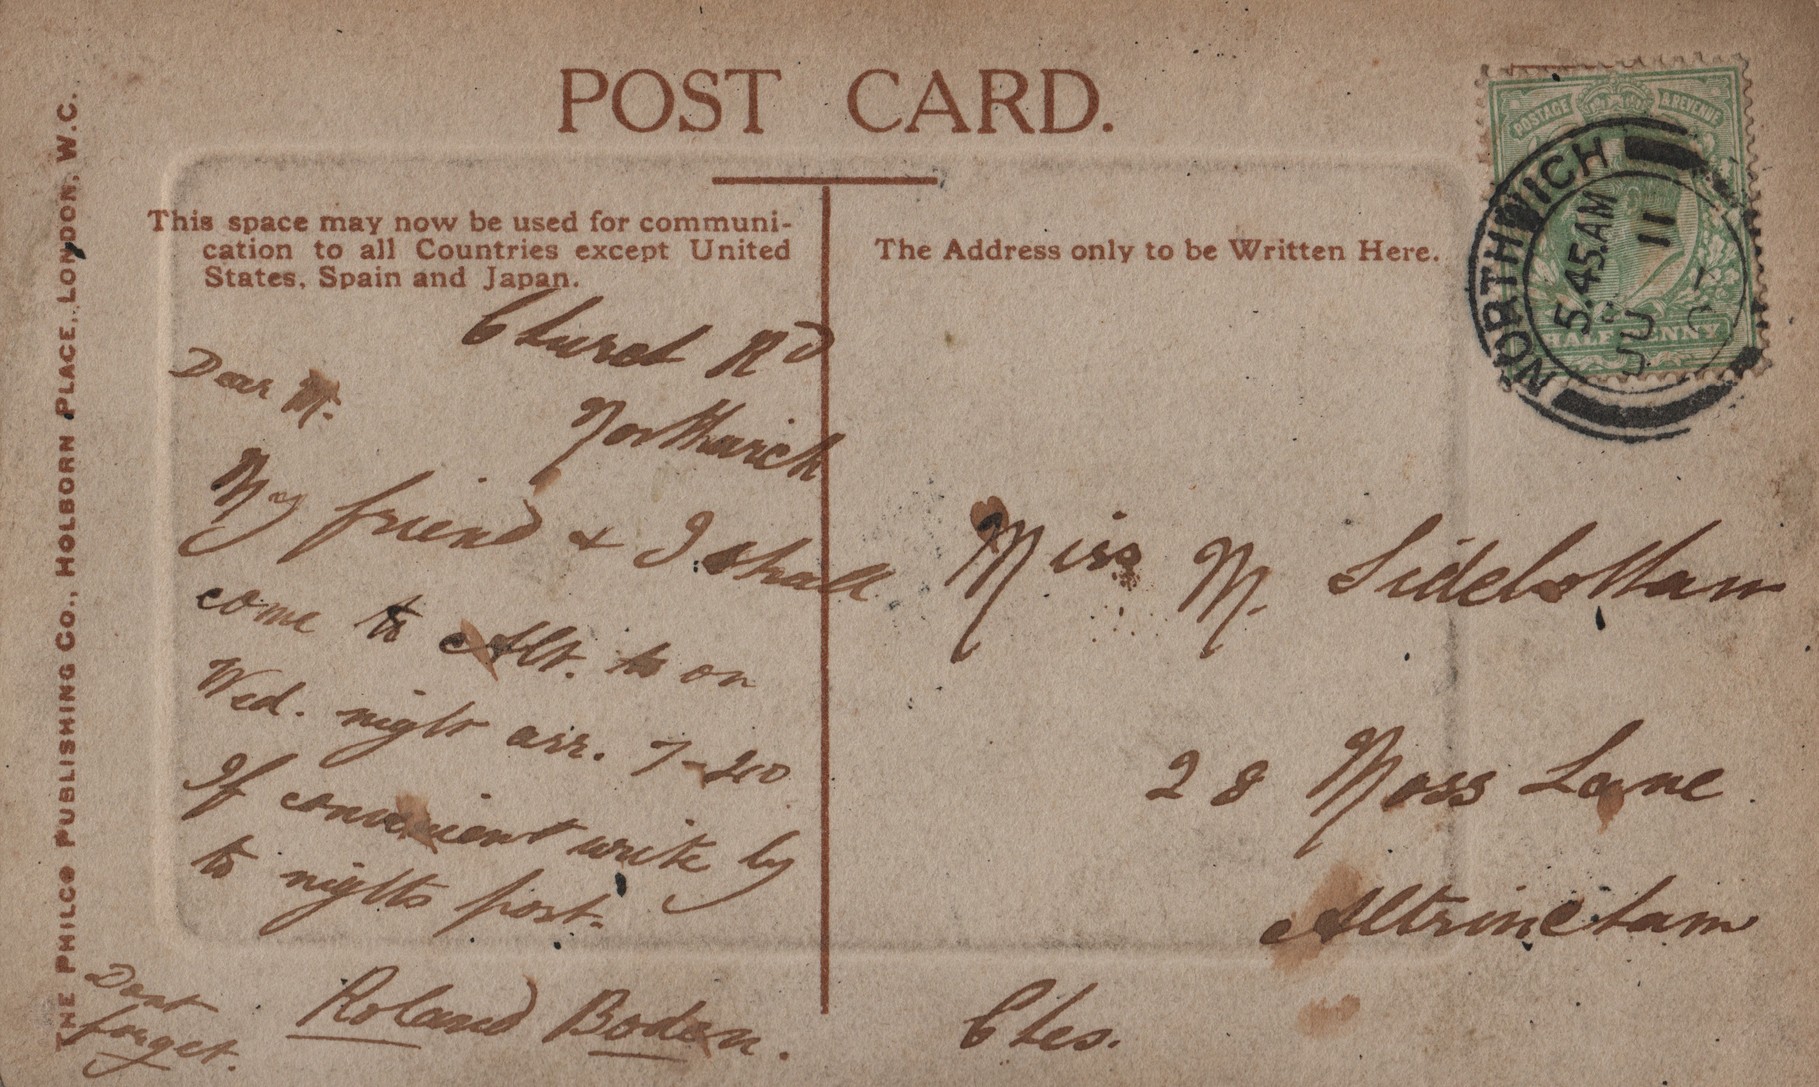 POST CARD.
THE PHILCO PUBLISHING CO., HOLBORN PLACE, LONDON, W.C.
This space may now be used for communi-
cation to all Countries except United
States, Spain and Japan.
The Address only to be Written Here.
POSTAGE & REVENUE
HALFPENNY
NORTHWICH
5.45.AM
JU
11
Church Rd
Northwich
Dear M.
My friend & I shall
come to Alt. to on
Wed. night arr. 7-20
If convenient write by
to nights post.
Roland Boden.
Dont
forget.
Miss M. Sidebottam
28 Moss Lane
Altrincham
Ches.